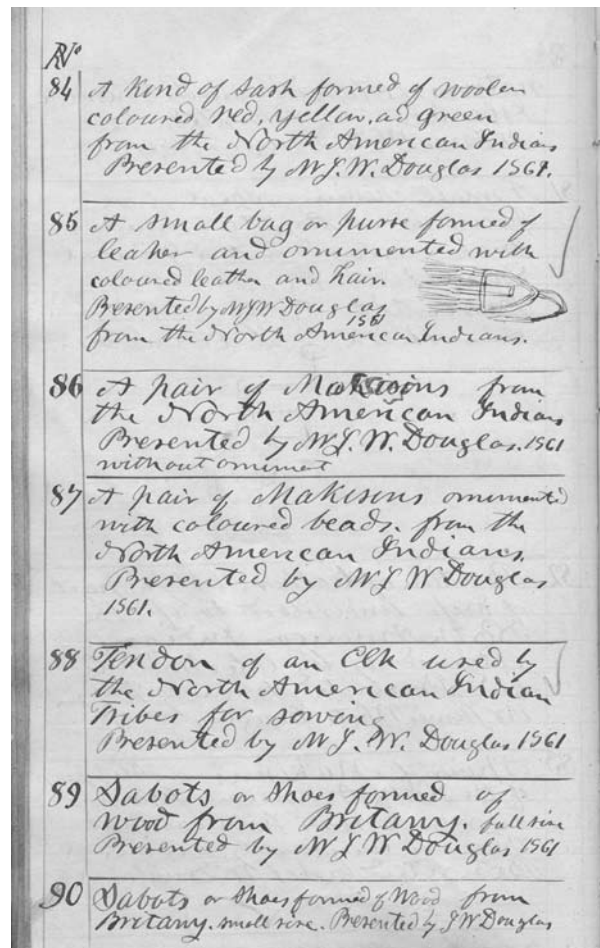 No
84 A kind of Sash formed of woolen
coloured red, yellow, ad green
from the North American Indians
Presented by Mr J. W. Douglas 1861.
85 A small bag or purse formed of
leaher and ornimented with
coloured leather and hair.
Presented by Mr J W Douglas
1861
from the North American Indians.
86 A pair of Makisons from
the North American Indians
Presented by Mr J. W. Douglas. 1861
without orniment
87 A pair of Makisons ornimented
with coloured beads. from the
North American Indians.
Presented by Mr J W Douglas
1861.
88 Tendon of an Elk used by
the North American Indian
Tribes for sowing
Presented by Mr J. W. Douglas 1861
89 Sabots or Shoes formed of
wood from Britany. full size
Presented by Mr J W Douglas 1861
90 Sabots or Shoes formed of Wood from
Britany. small size. Presented by J W Douglas